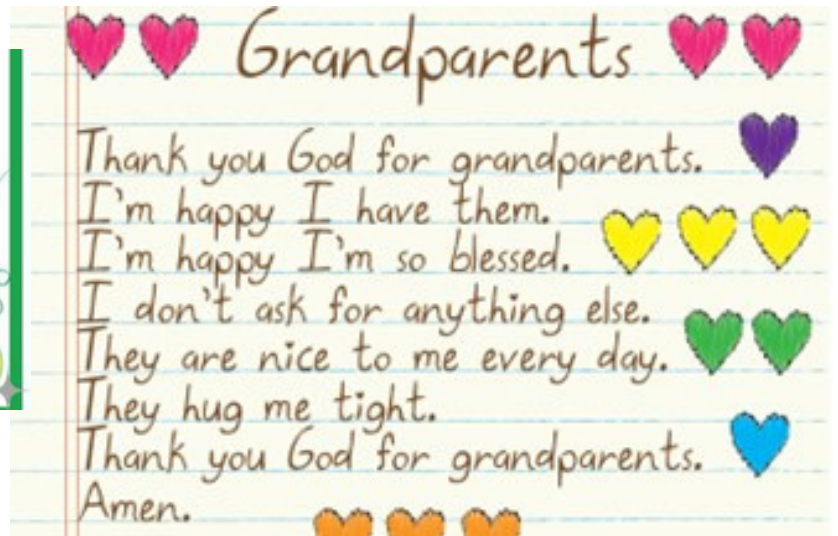 Grandparents
Thank you God for grandparents.
I'm happy I have them.
I'm happy I'm so blessed.
I don't ask for anything else.
They are nice to me every day.
They hug me tight.
Thank you God for grandparents.
Amen.